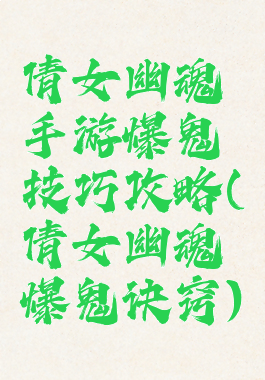 倩女幽魂
手游爆鬼
技巧攻略(
倩女幽魂
爆鬼诀窍)